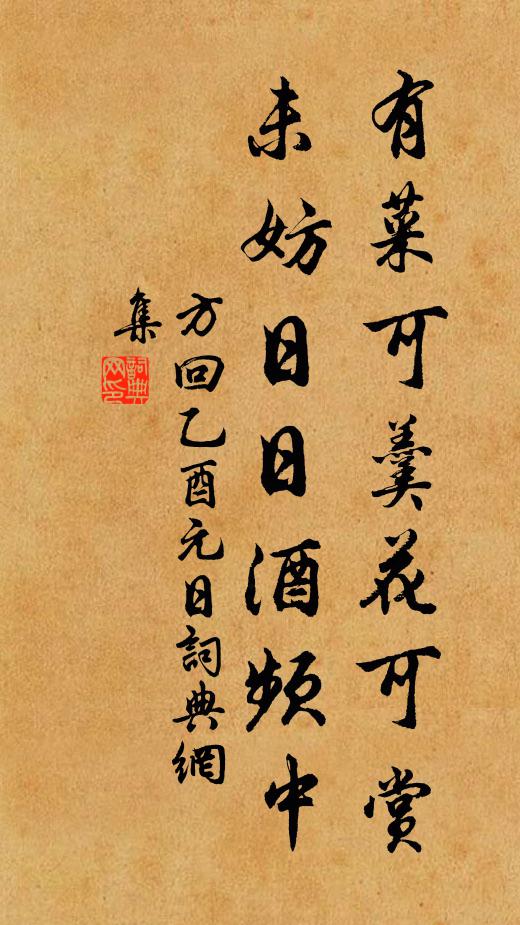 有菜可羹花可赏
未妨日日酒频中
方回乙酉元日詞典網
集
詞典
网印